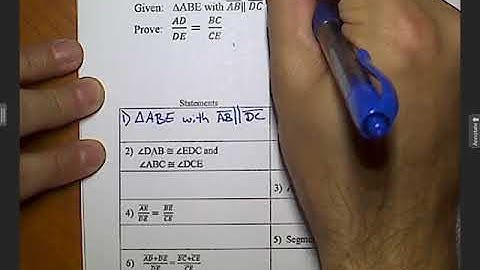 Given: ΔABE with AB‖DC
Prove: AD/DE = BC/CE
Statements
1) ΔABE with AB‖DC
2) ∠DAB ≅ ∠EDC and
∠ABC ≅ ∠DCE
3)
4) AE/DE = BE/CE
5) Segme
6) AD+DE/DE = BC+CE/CE
Annotate